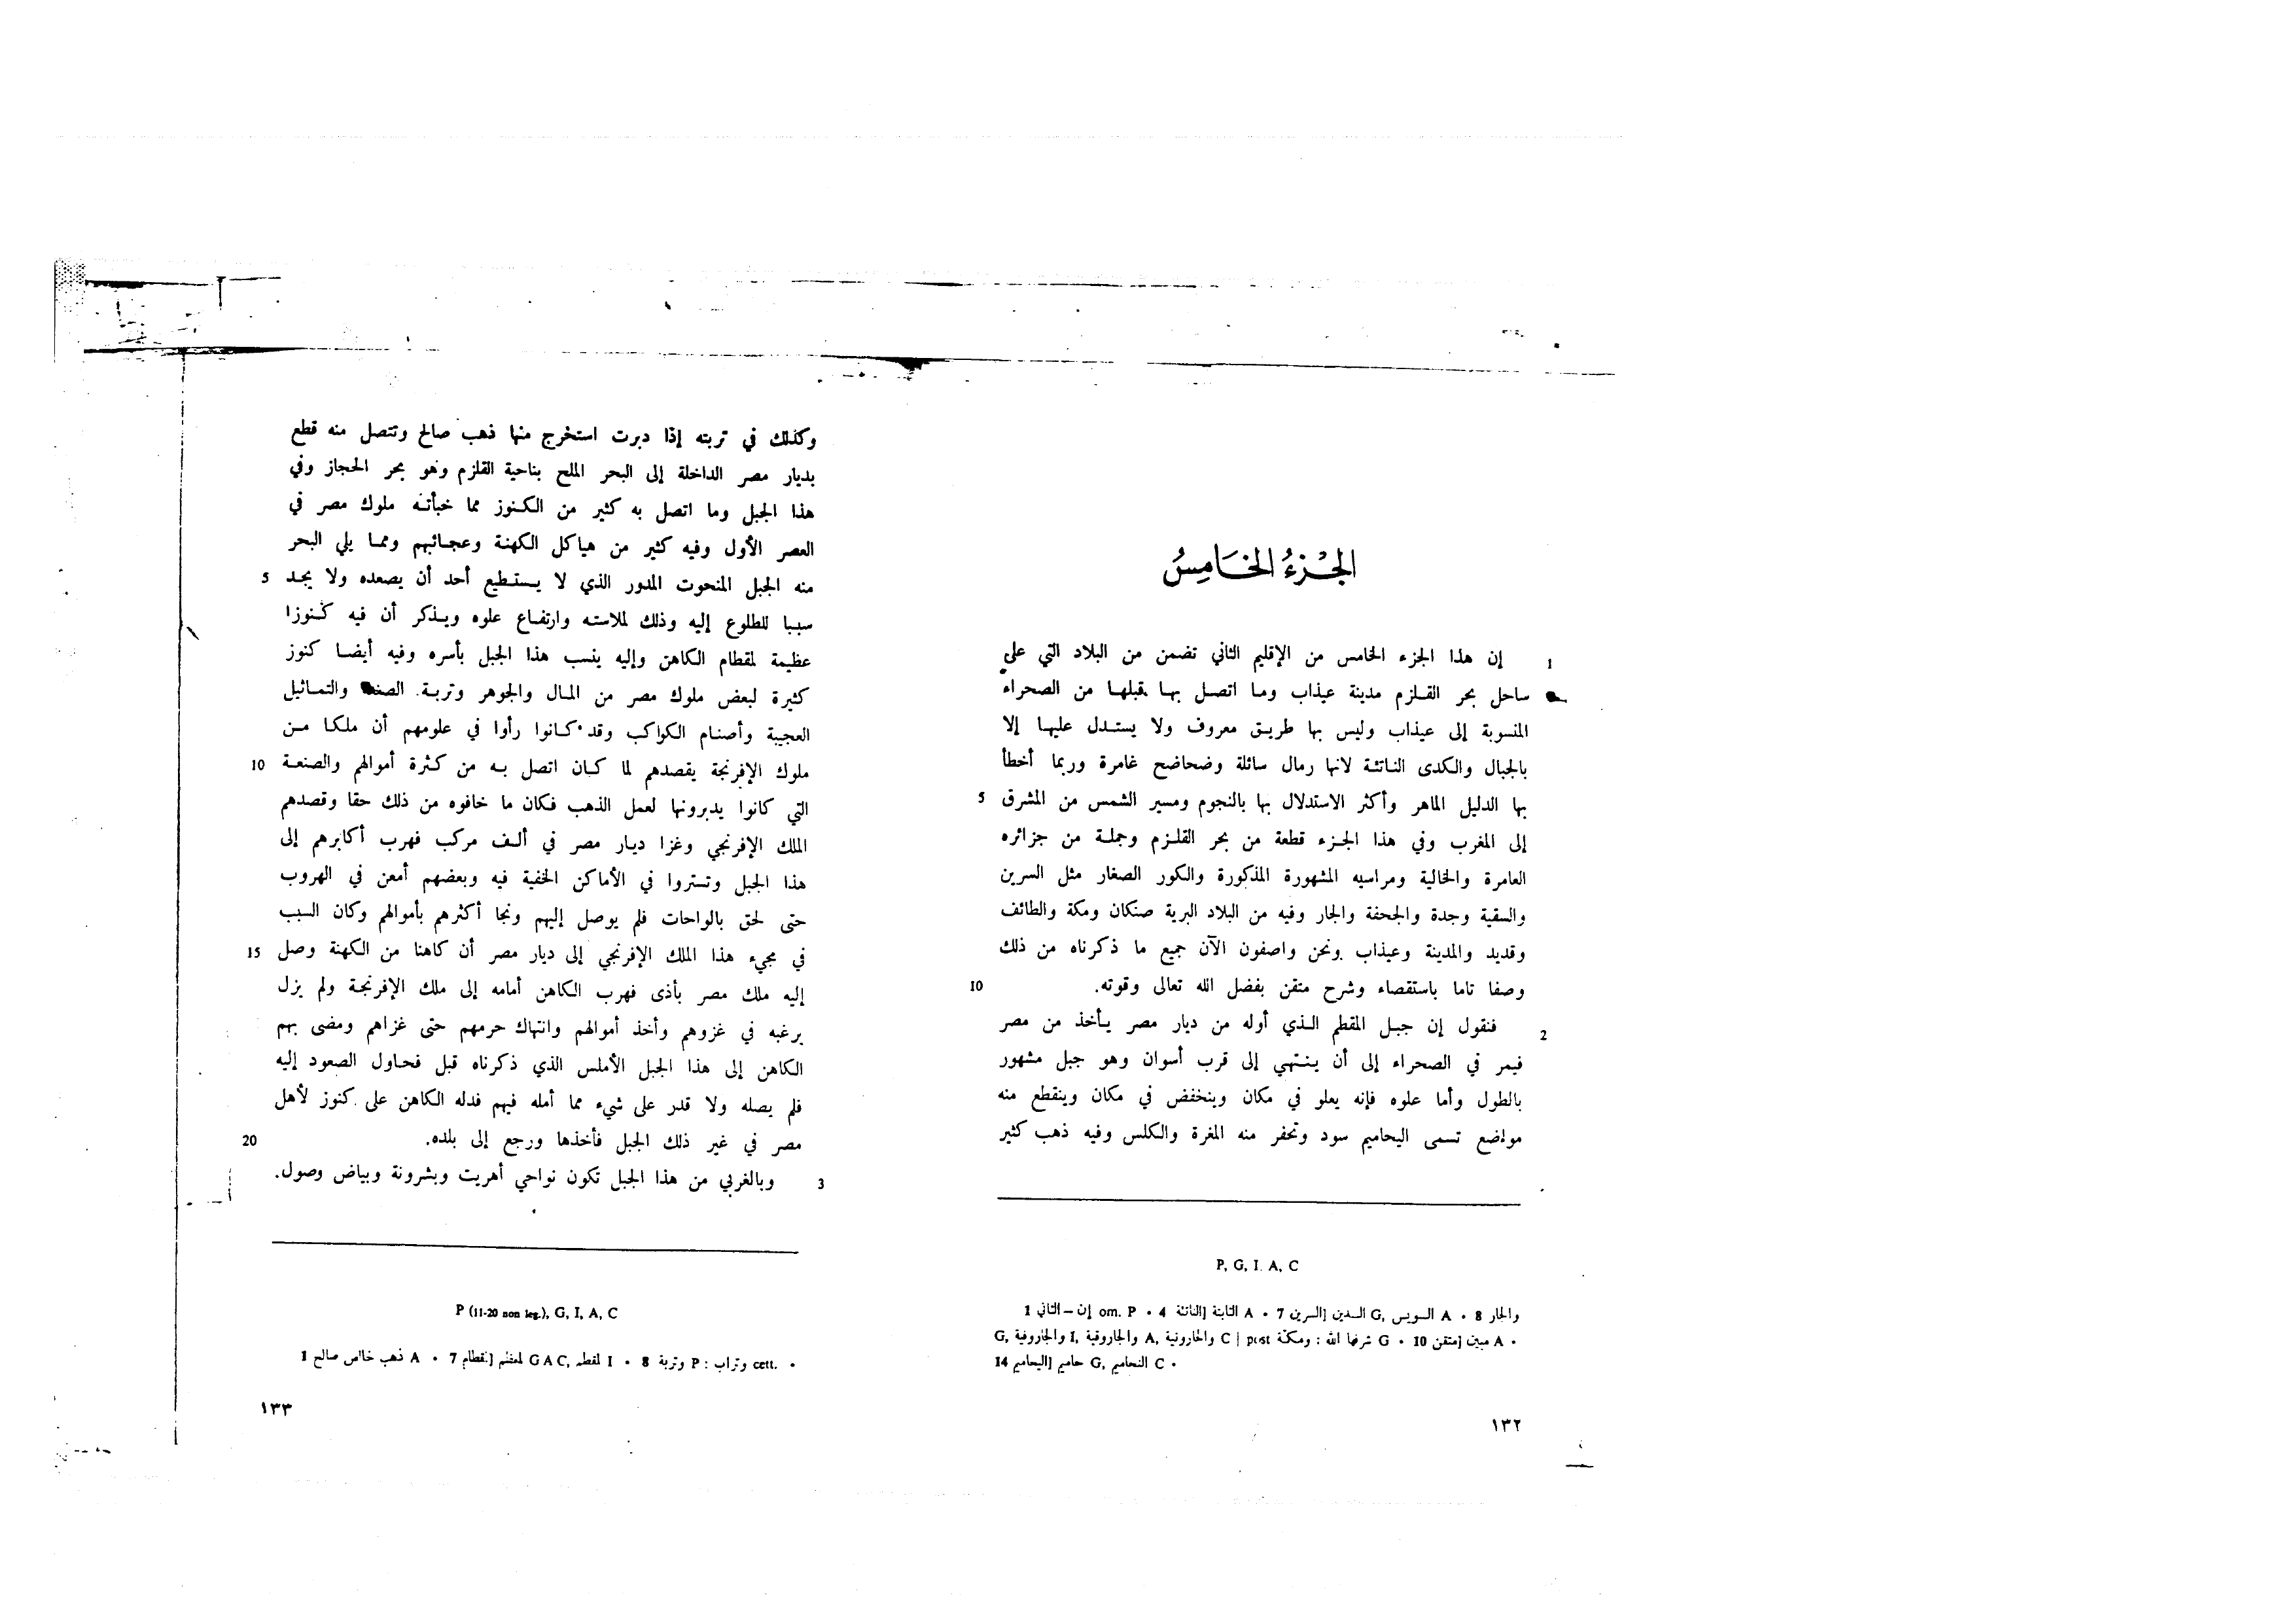 الجُزءُ الخَامِسُ
1 إن هذا الجزء الخامس من الإقليم الثاني تضمن من البلاد التي على
ساحل بحر القلزم مدينة عيذاب وما اتصل بها قبلها من الصحراء
المنسوبة إلى عيذاب وليس بها طريق معروف ولا يستدل عليها إلا
بالجبال والكدى الناتئة لانها رمال سائلة وضحاضح غامرة وربما أخطأ
بها الدليل الماهر وأكثر الاستدلال بها بالنجوم ومسير الشمس من المشرق 5
إلى المغرب وفي هذا الجزء قطعة من بحر القلزم وجملة من جزائره
العامرة والخالية ومراسيه المشهورة المذكورة والكور الصغار مثل السرين
والسقية وجدة والجحفة والجار وفيه من البلاد البرية صنكان ومكة والطائف
وقديد والمدينة وعيذاب ونحن واصفون الآن جميع ما ذكرناه من ذلك
وصفا تاما باستقصاء وشرح متقن بفضل الله تعالى وقوته. 10
2 فنقول إن جبل المقطم الذي أوله من ديار مصر يأخذ من مصر
فيمر في الصحراء إلى أن ينتهي إلى قرب أسوان وهو جبل مشهور
بالطول وأما علوه فإنه يعلو في مكان وينخفض في مكان وينقطع منه
مواضع تسمى اليحاميم سود وتحفر منه المغرة والكلس وفيه ذهب كثير
P, G, I, A, C
1 إن – الثاني om. P • 4 الناتئة] الثابتة A • 7 السرين] السدين G, السويس A • 8 والجار
والجاروفية G, والجاروقية I, والحارونية A, C | post ومكة : شرفها الله G • 10 متقن] مبين A •
14 اليحاميم] حاميم G, النحاميم C •
١٣٢
وكذلك في تربته إذا دبرت استخرج منها ذهب صالح وتتصل منه قطع
بديار مصر الداخلة إلى البحر الملح بناحية القلزم وهو بحر الحجاز وفي
هذا الجبل وما اتصل به كثير من الكنوز مما خبأته ملوك مصر في
العصر الأول وفيه كثير من هياكل الكهنة وعجائبهم ومما يلي البحر
منه الجبل المنحوت المدور الذي لا يستطيع أحد أن يصعده ولا يجد 5
سببا للطلوع إليه وذلك لملاسته وارتفاع علوه ويذكر أن فيه كنوزا
عظيمة لمقطام الكاهن وإليه ينسب هذا الجبل بأسره وفيه أيضا كنوز
كثيرة لبعض ملوك مصر من المال والجوهر وتربة الصنعة والتماثيل
العجيبة وأصنام الكواكب وقد كانوا رأوا في علومهم أن ملكا من
ملوك الإفرنجة يقصدهم لما كان اتصل به من كثرة أموالهم والصنعة 10
التي كانوا يدبرونها لعمل الذهب فكان ما خافوه من ذلك حقا وقصدهم
الملك الإفرنجي وغزا ديار مصر في ألف مركب فهرب أكابرهم إلى
هذا الجبل وتستروا في الأماكن الخفية فيه وبعضهم أمعن في الهروب
حتى لحق بالواحات فلم يوصل إليهم ونجا أكثرهم بأموالهم وكان السبب
في مجيء هذا الملك الإفرنجي إلى ديار مصر أن كاهنا من الكهنة وصل 15
إليه ملك مصر بأذى فهرب الكاهن أمامه إلى ملك الإفرنجة ولم يزل
يرغبه في غزوهم وأخذ أموالهم وانتهاك حرمهم حتى غزاهم ومضى بهم
الكاهن إلى هذا الجبل الأملس الذي ذكرناه قبل فحاول الصعود إليه
فلم يصله ولا قدر على شيء مما أمله فيهم فدله الكاهن على كنوز لأهل
مصر في غير ذلك الجبل فأخذها ورجع إلى بلده. 20
3 وبالغربي من هذا الجبل تكون نواحي أهريت وبشرونة وبياض وصول.
P (11-20 non leg.), G, I, A, C
1 ذهب خالص صالح A • 7 لمقطام] لمقطم G A C, لمقطه I • 8 وتربة P : وتراب cett. •
١٣٣